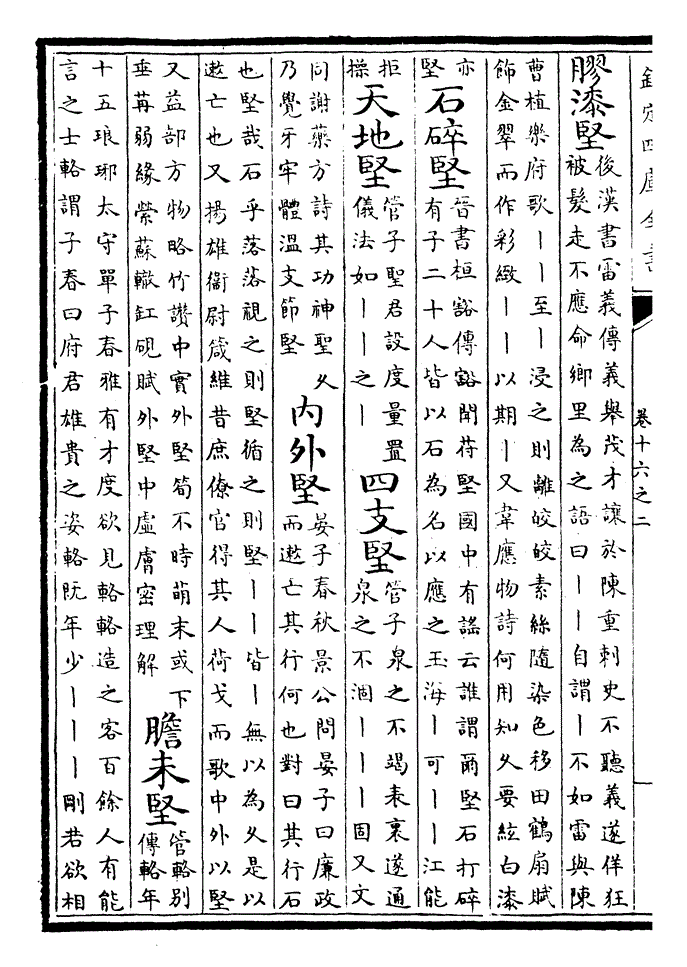 欽定四庫全書
卷十六之二
膠漆堅
後漢書雷義傳義舉茂才讓於陳重刺史不聽義遂佯狂
被髮走不應命鄉里為之語曰丨丨自謂丨不如雷與陳
曹植樂府歌丨丨至丨浸之則離皎皎素絲隨染色移田鶴扇賦
飾金翠而作彩緻丨丨以期丨又韋應物詩何用知久要絃白漆
亦
堅
石碎堅
晉書桓豁傳豁聞苻堅國中有謠云誰謂爾堅石打碎
有子二十人皆以石為名以應之玉海丨可丨丨江能
拒
操
天地堅
管子聖君設度量置
儀法如丨丨之丨
四支堅
管子泉之不竭表裏遂通
泉之不涸丨丨丨固又文
同謝藥方詩其功神聖久
乃覺牙牢體溫支節堅
內外堅
晏子春秋景公問晏子曰廉政
而遬亡其行何也對曰其行石
也堅哉石乎落落視之則堅循之則堅丨丨皆丨無以為久是以
遬亡也又揚雄衛尉箴維昔庶僚官得其人荷戈而歌中外以堅
又益部方物略竹讚中實外堅筍不時萌末或下
垂苒弱緣縈蘇轍缸硯賦外堅中虛膚密理解
膽未堅
管輅別
傳輅年
十五琅琊太守單子春雅有才度欲見輅輅造之客百餘人有能
言之士輅謂子春曰府君雄貴之姿輅既年少丨丨丨剛若欲相